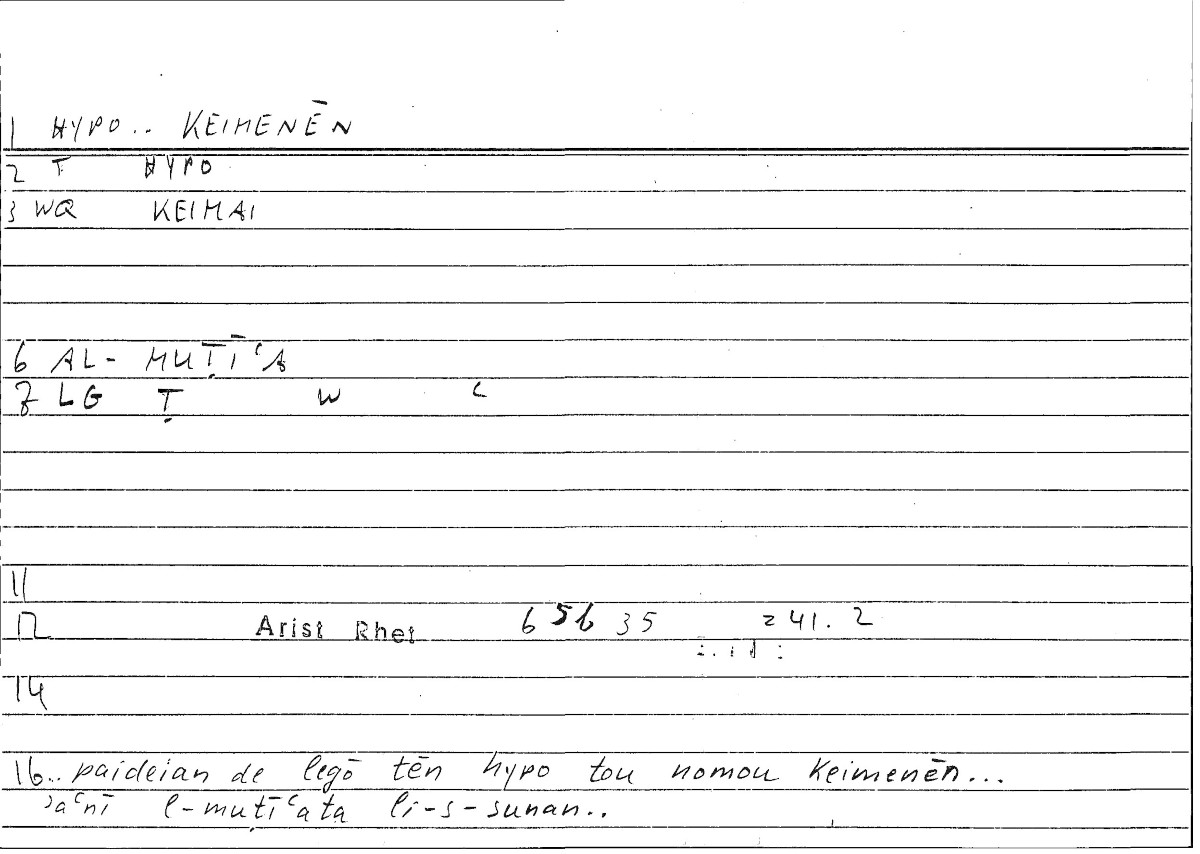 1 HYPO.. KEIMENĒN
2 T HYPO
3 WQ KEIMAI
6 AL- MUṬĪʿA
7 LG Ṭ W ʿ
11
12 Arist Rhet 65b 35 = 41. 2
14
16.. paideian de legō tēn hypo tou nomou keimenēn...
ʾaʿnī l-muṭīʿata li-s-sunan..